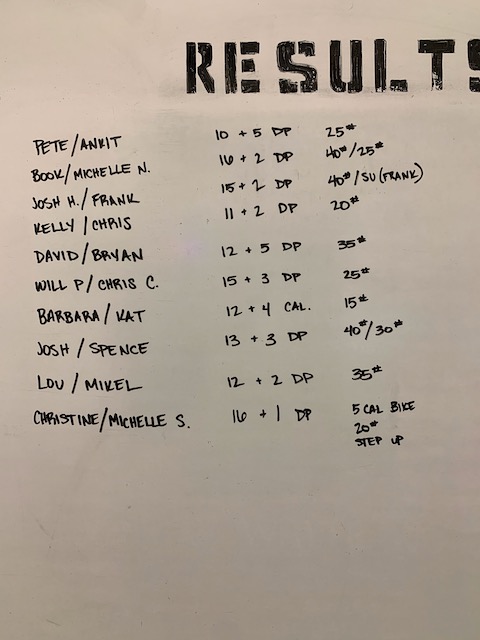 RESULTS
PETE/ANKIT 10 + 5 DP 25#
BOOK/MICHELLE N. 16 + 2 DP 40#/25#
JOSH H./FRANK 15 + 2 DP 40#/SU (FRANK)
KELLY/CHRIS 11 + 2 DP 20#
DAVID/BRYAN 12 + 5 DP 35#
WILL P/CHRIS C. 15 + 3 DP 25#
BARBARA/KAT 12 + 4 CAL. 15#
JOSH/SPENCE 13 + 3 DP 40#/30#
LOU/MIKEL 12 + 2 DP 35#
CHRISTINE/MICHELLE S. 16 + 1 DP 5 CAL BIKE
20#
STEP UP